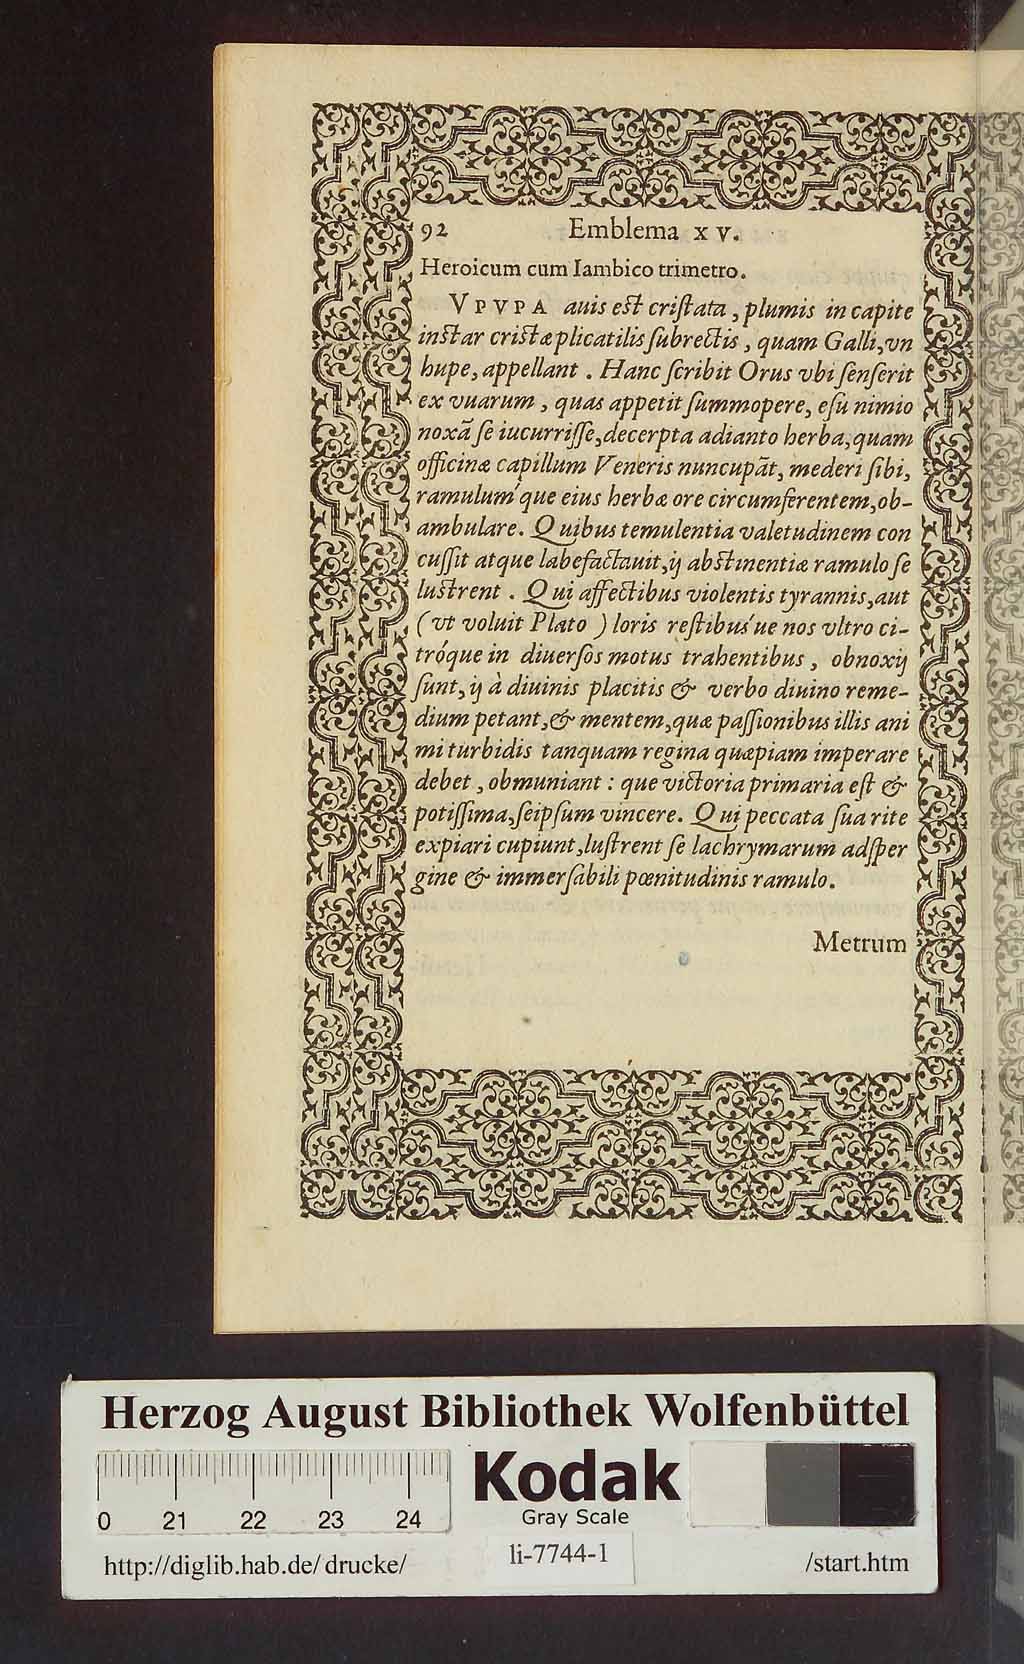 92 Emblema x v.
Heroicum cum Iambico trimetro.
VPVPA auis est cristata, plumis in capite
instar cristæ plicatilis subrectis, quam Galli, vn
hupe, appellant. Hanc scribit Orus vbi senserit
ex vuarum, quas appetit summopere, esu nimio
noxā se iucurrisse, decerpta adianto herba, quam
officinæ capillum Veneris nuncupāt, mederi sibi,
ramulum´que eius herbæ ore circumferentem, ob-
ambulare. Quibus temulentia valetudinem con
cussit atque labefactauit, ij abstinentiæ ramulo se
lustrent. Qui affectibus violentis tyrannis, aut
(vt voluit Plato) loris restibus´ue nos vltro ci-
tróque in diuersos motus trahentibus, obnoxij
sunt, ij à diuinis placitis & verbo diuino reme-
dium petant, & mentem, quæ passionibus illis ani
mi turbidis tanquam regina quæpiam imperare
debet, obmuniant: que victoria primaria est &
potissima, seipsum vincere. Qui peccata sua rite
expiari cupiunt, lustrent se lachrymarum adsper
gine & immersabili pœnitudinis ramulo.
Metrum
Herzog August Bibliothek Wolfenbüttel
0 21 22 23 24
Kodak
Gray Scale
http://diglib.hab.de/drucke/ li-7744-1 /start.htm